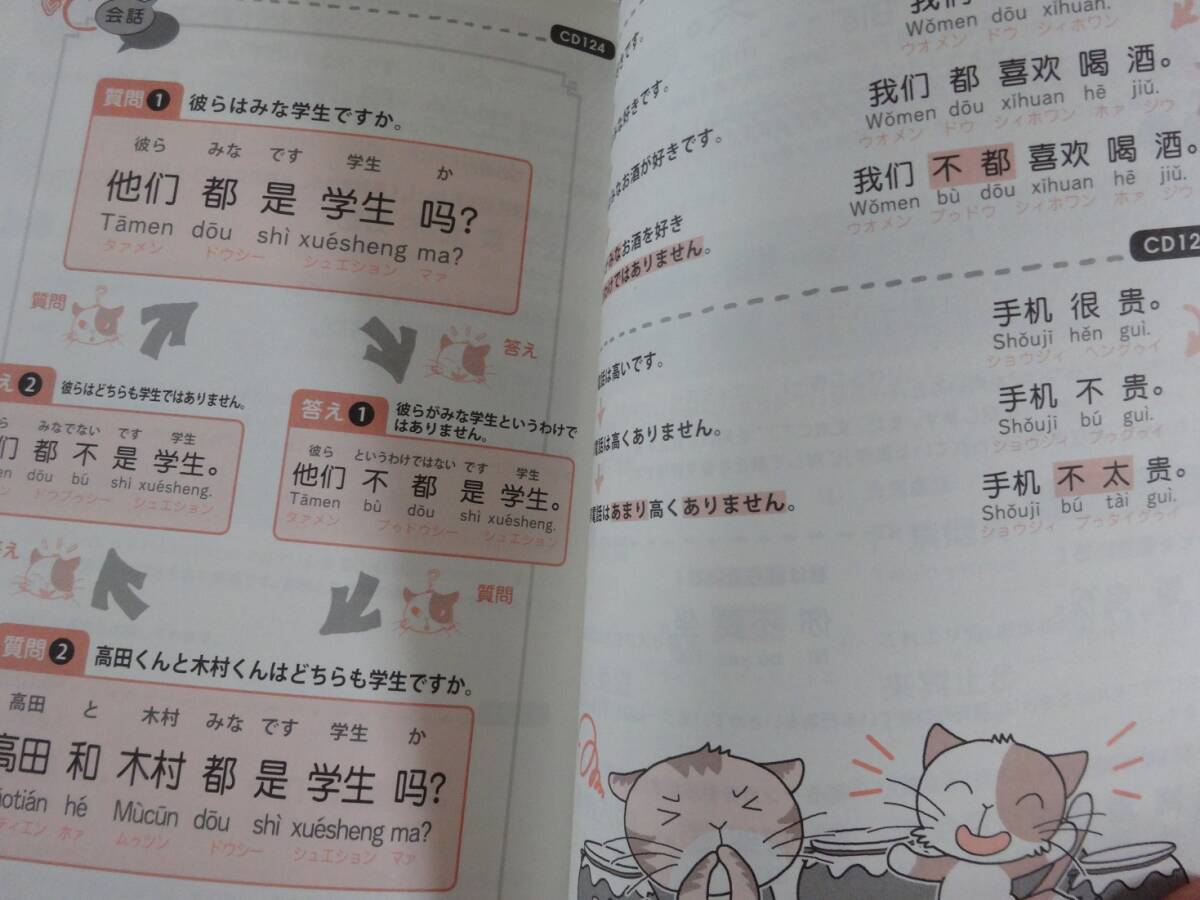 会話
CD124
質問1 彼らはみな学生ですか。
彼ら みな です 学生 か
他们 都 是 学生 吗?
Tāmen dōu shì xuésheng ma?
タァメン ドウシー シュエション マァ
質問
答え
え2 彼らはどちらも学生ではありません。
ら みなでない です 学生
们 都 不 是 学生。
en dōu bú shì xuésheng.
ン ドウブゥシー シュエション
答え1 彼らがみな学生というわけで
はありません。
彼ら というわけではない です 学生
他们 不 都 是 学生。
Tāmen bù dōu shì xuésheng.
タァメン ブゥドウシー シュエション
え
質問
質問2 高田くんと木村くんはどちらも学生ですか。
高田 と 木村 みな です 学生 か
高田 和 木村 都 是 学生 吗?
otián hé Mùcūn dōu shì xuésheng ma?
ティエン ホァ ムゥツン ドウシー シュエション マァ
です。
我们 都 喜欢
Wǒmen dōu xǐhuan.
ウオメン ドウ シィホワン
好きです。
我们 都 喜欢 喝 酒。
Wǒmen dōu xǐhuan hē jiǔ.
ウオメン ドウ シィホワン ホァ ジウ
みなお酒が好きです。
我们 不都 喜欢 喝 酒。
Wǒmen bù dōu xǐhuan hē jiǔ.
ウオメン ブゥドウ シィホワン ホァ ジウ
みなお酒を好き
わけではありません。
CD12
手机 很 贵。
Shǒujī hěn guì.
ショウジィ ヘングゥイ
電話は高いです。
手机 不 贵。
Shǒujī bú guì.
ショウジィ ブゥグゥイ
電話は高くありません。
手机 不太 贵。
Shǒujī bú tài guì.
ショウジィ ブゥタイグゥイ
電話はあまり高くありません。